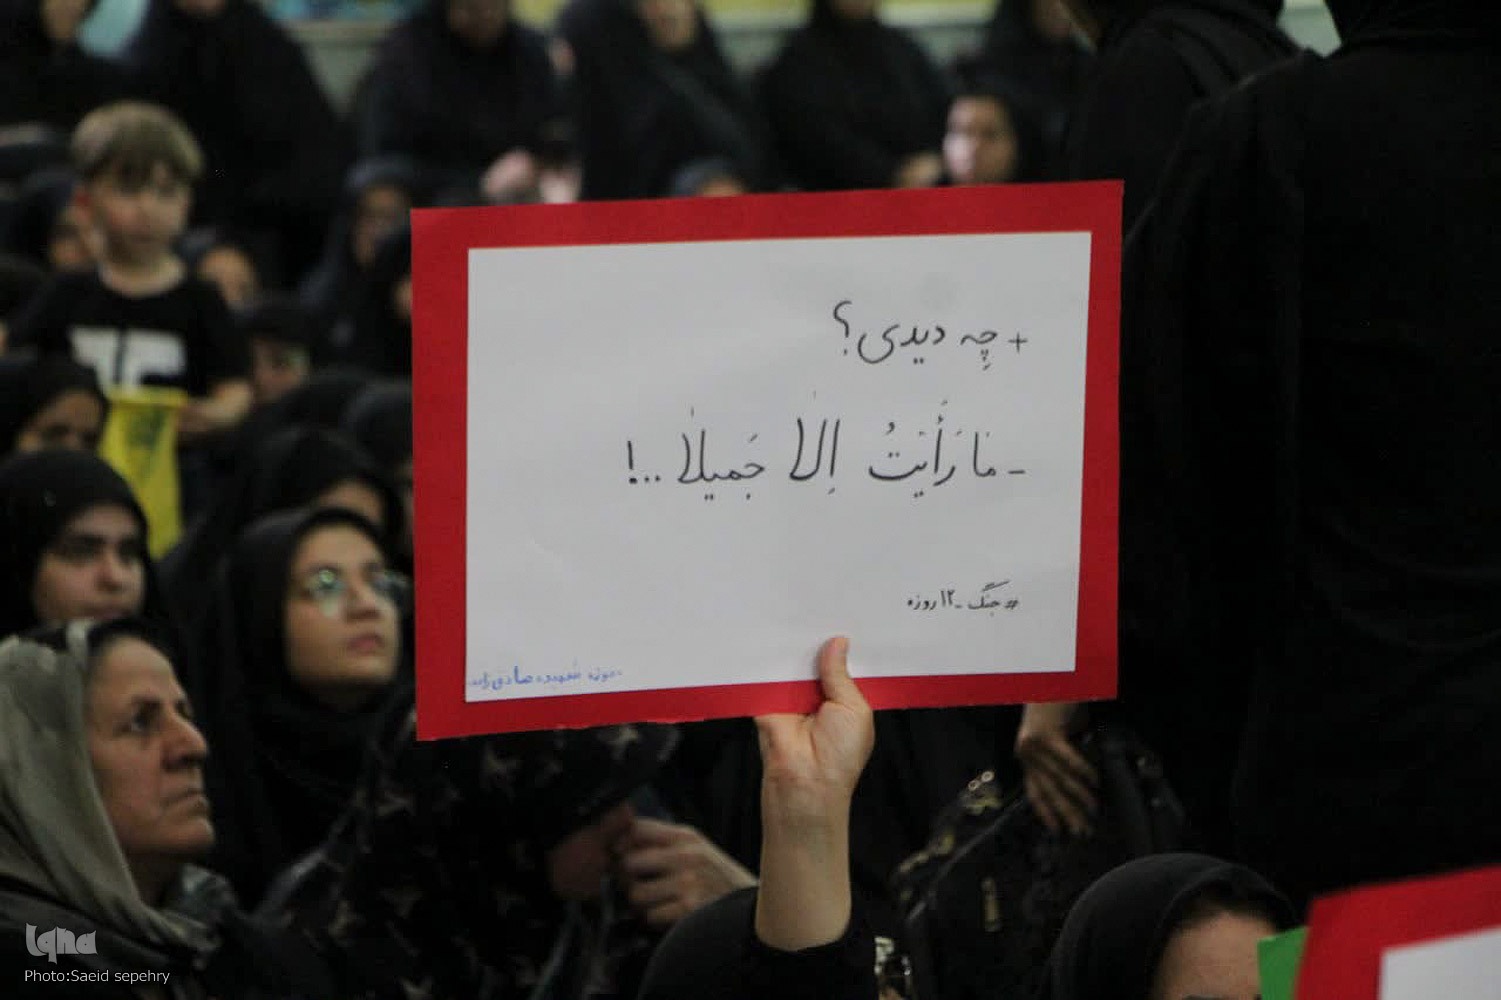 + چِه دیدی؟
- مَا رَأَیتُ اِلّا جَمیلا ...!
# جنگ_۱۲ روزه
حوزه شهیده صادق زاده
Iqna
Photo:Saeid sepehry